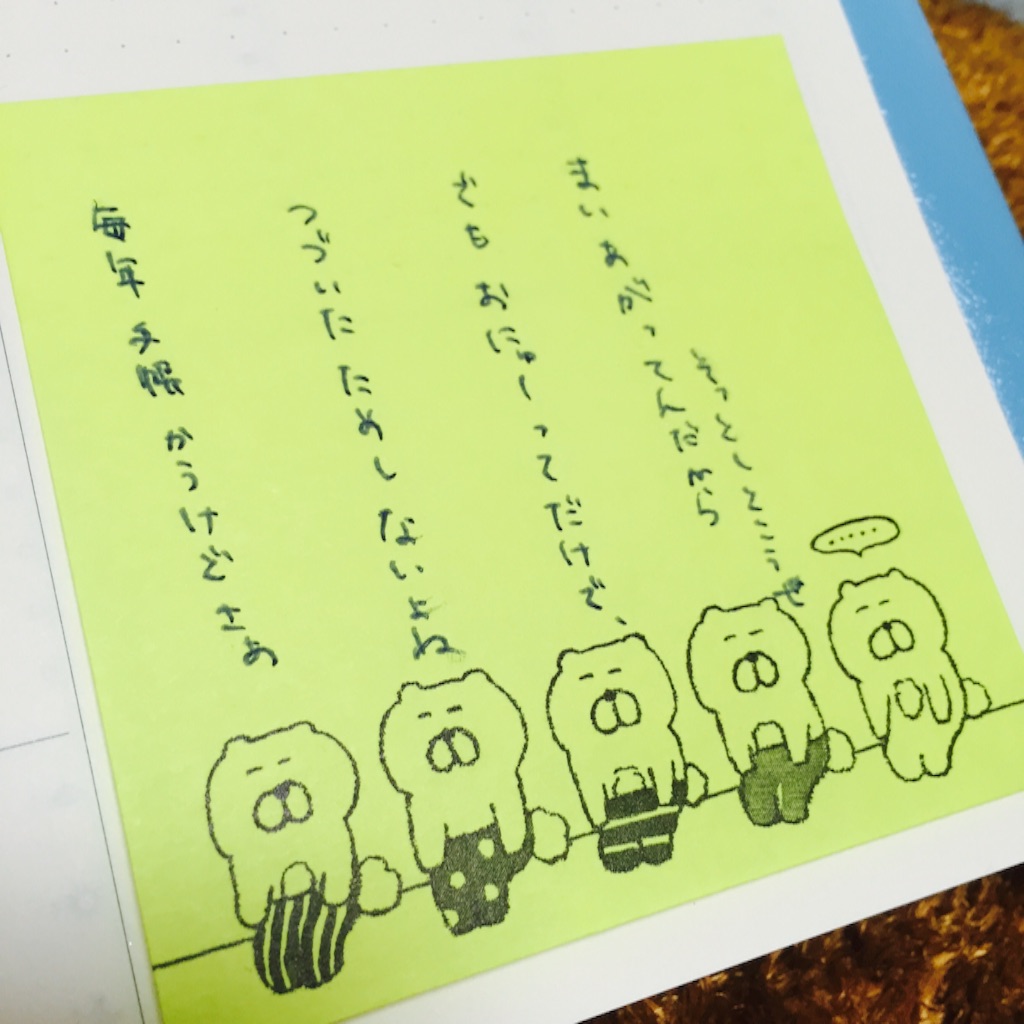 毎年 手帳 かうけどさあ
つづいた ためし ないよね
でも おにゅーってだけで、
まいあがってんだから
そっとしとこうぜ
……